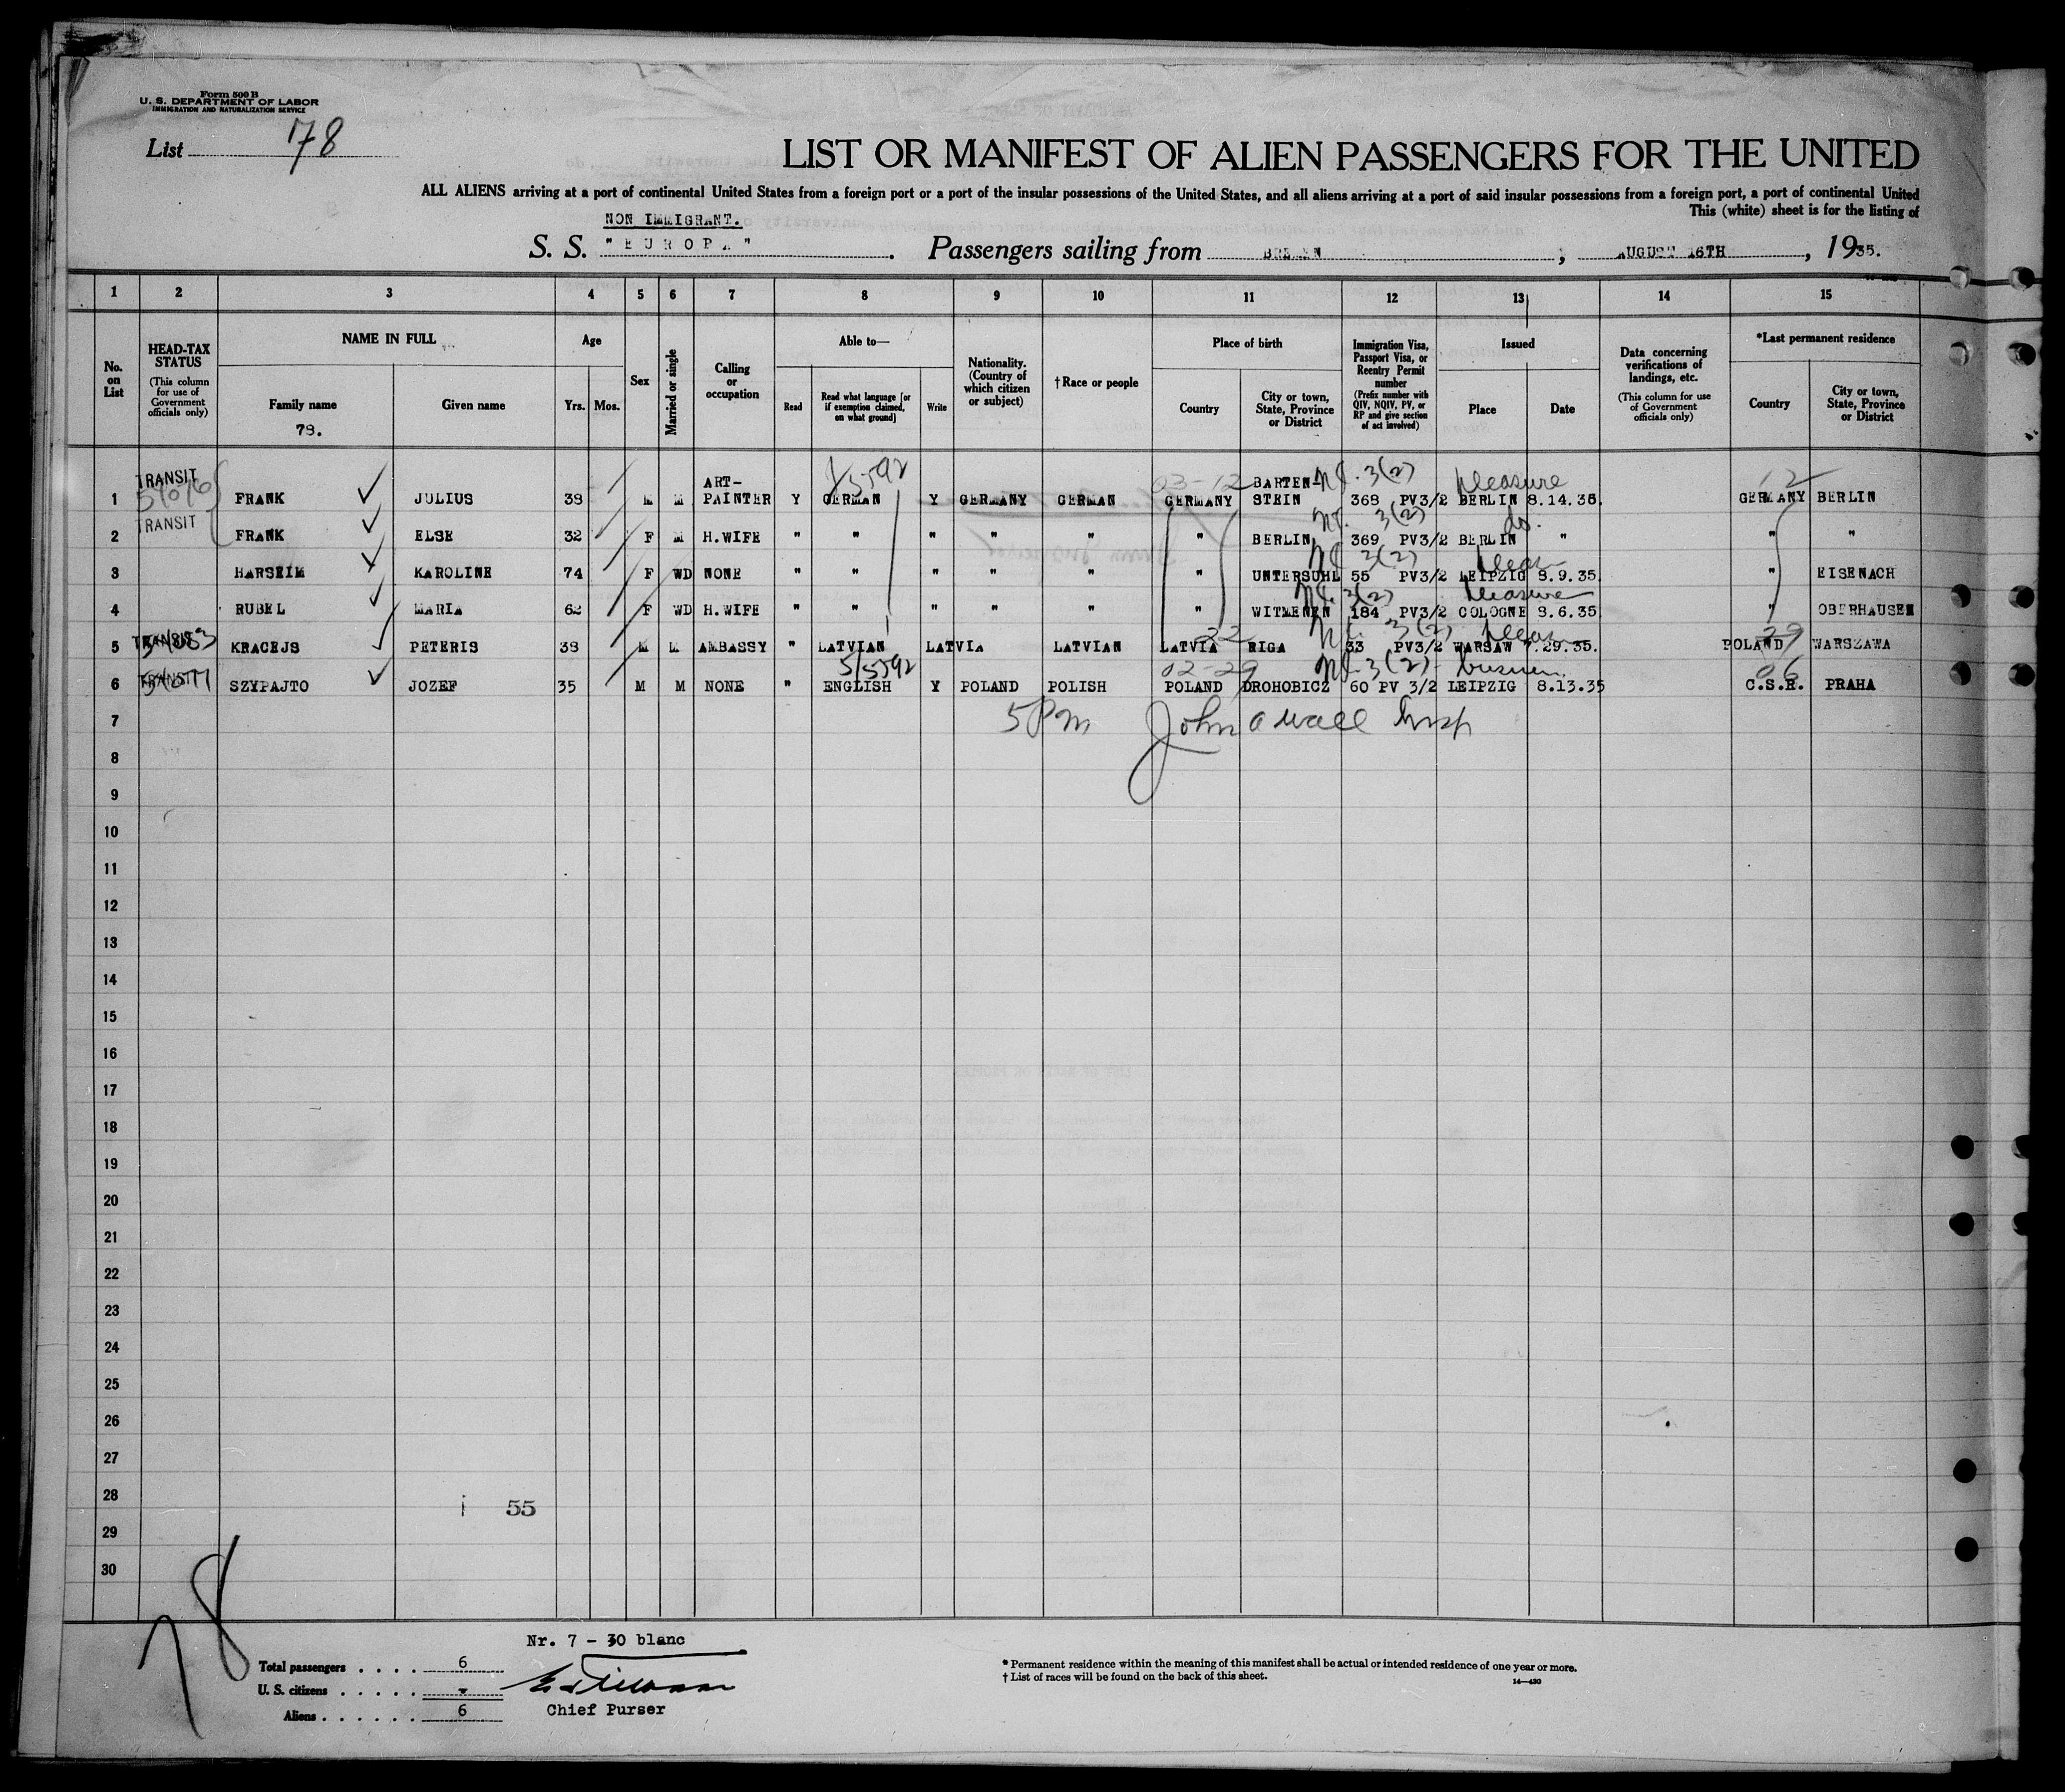 Form 500 B
U. S. DEPARTMENT OF LABOR
IMMIGRATION AND NATURALIZATION SERVICE
List 78
LIST OR MANIFEST OF ALIEN PASSENGERS FOR THE UNITED
ALL ALIENS arriving at a port of continental United States from a foreign port or a port of the insular possessions of the United States, and all aliens arriving at a port of said insular possessions from a foreign port, a port of continental United
This (white) sheet is for the listing of
NON IMMIGRANT.
S. S. "EUROPA". Passengers sailing from BREMEN, AUGUST 16TH, 1935.
1 2 3 4 5 6 7 8 9 10 11 12 13 14 15
No. on List
HEAD-TAX STATUS (This column for use of Government officials only)
NAME IN FULL
Family name
78.
Given name
Age
Yrs. Mos.
Sex
Married or single
Calling or occupation
Able to—
Read
Read what language [or if exemption claimed, on what ground]
Write
Nationality. (Country of which citizen or subject)
†Race or people
Place of birth
Country
City or town, State, Province or District
Immigration Visa, Passport Visa, or Reentry Permit number (Prefix number with QIV, NQIV, PV, or RP and give section of act involved)
Issued
Place
Date
Data concerning verifications of landings, etc. (This column for use of Government officials only)
*Last permanent residence
Country
City or town, State, Province or District
TRANSIT ART- 5/5592 03-12 BARTEN- 3(2) pleasure 12
1 FRANK JULIUS 38 M M PAINTER Y GERMAN Y GERMANY GERMAN GERMANY STEIN 368 PV3/2 BERLIN 8.14.35. GERMANY BERLIN
TRANSIT 3(2) do.
2 FRANK ELSE 32 F M H.WIFE " " " " " " BERLIN 369 PV3/2 BERLIN " " "
3(2)
3 HARSEIM KAROLINE 74 F WD NONE " " " " " " UNTERSUHL 55 PV3/2 LEIPZIG 8.9.35. " EISENACH
3(2) pleasure
4 RUBEL MARIA 62 F WD H.WIFE " " " " " " WITMENEN 184 PV3/2 COLOGNE 8.6.35. " OBERHAUSEN
TRANSIT 22 3(2) 29
5 KRACEJS PETERIS 38 M M AMBASSY " LATVIAN LATVIA LATVIAN LATVIA RIGA 33 PV3/2 WARSAW 7.29.35. POLAND WARSZAWA
TRANSIT 5/5592 02-29 3(2) business 06
6 SZYPAJTO JOZEF 35 M M NONE " ENGLISH Y POLAND POLISH POLAND DROHOBICZ 60 PV 3/2 LEIPZIG 8.13.35 C.S.R. PRAHA
7 5 PM John Insp
8
9
10
11
12
13
14
15
16
17
18
19
20
21
22
23
24
25
26
27
28
55
29
30
78
Nr. 7 - 30 blanc
Total passengers . . . . 6
U. S. citizens . . . . . -
Aliens . . . . . . 6
Chief Purser
* Permanent residence within the meaning of this manifest shall be actual or intended residence of one year or more.
† List of races will be found on the back of this sheet.
14—430